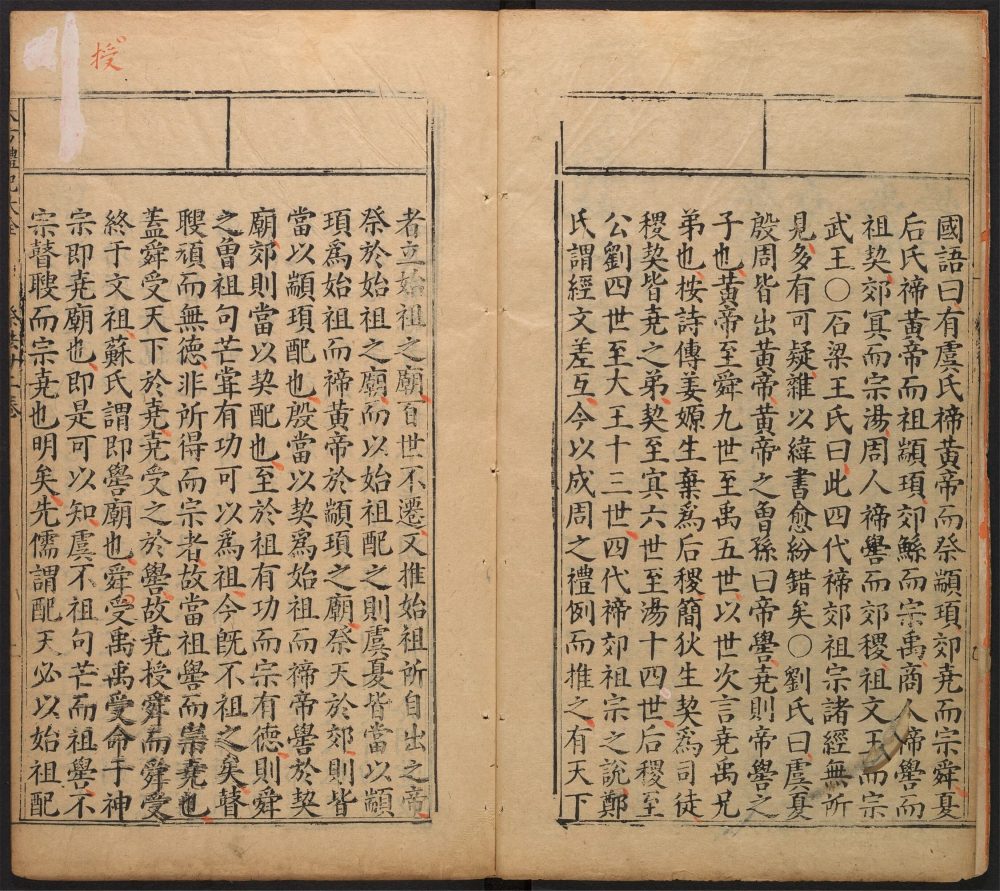 國語曰有虞氏禘黃帝而祭顓頊郊堯而宗舜夏
后氏禘黃帝而祖顓頊郊鯀而宗禹商人禘嚳而
祖契郊冥而宗湯周人禘嚳而郊稷祖文王而宗
武王○石梁王氏曰此四代禘郊祖宗諸經無所
見多有可疑雜以緯書愈紛錯矣○劉氏曰虞夏
殷周皆出黃帝黃帝之曾孫曰帝嚳堯則帝嚳之
子也黃帝至舜九世至禹五世以世次言堯禹兄
弟也按詩傳姜嫄生棄爲后稷簡狄生契爲司徒
稷契皆堯之弟契至冥六世至湯十四世后稷至
公劉四世至大王十三世四代禘郊祖宗之說鄭
氏謂經文差互今以成周之禮例而推之有天下
者立始祖之廟百世不遷又推始祖所自出之帝
祭於始祖之廟而以始祖配之則虞夏皆當以顓
頊爲始祖而禘黃帝於顓頊之廟祭天於郊則皆
當以顓頊配也殷當以契爲始祖而禘帝嚳於契
廟郊則當以契配也至於祖有功而宗有德則舜
之曾祖句芒甞有功可以爲祖今旣不祖之矣瞽
瞍頑而無德非所得而宗者故當祖嚳而崇堯也
蓋舜受天下於堯堯受之於嚳故堯授舜而舜受
終于文祖蘇氏謂即嚳廟也舜受禹禹受命于神
宗即堯廟也即是可以知虞不祖句芒而祖嚳不
宗瞽瞍而宗堯也明矣先儒謂配天必以始祖配
授